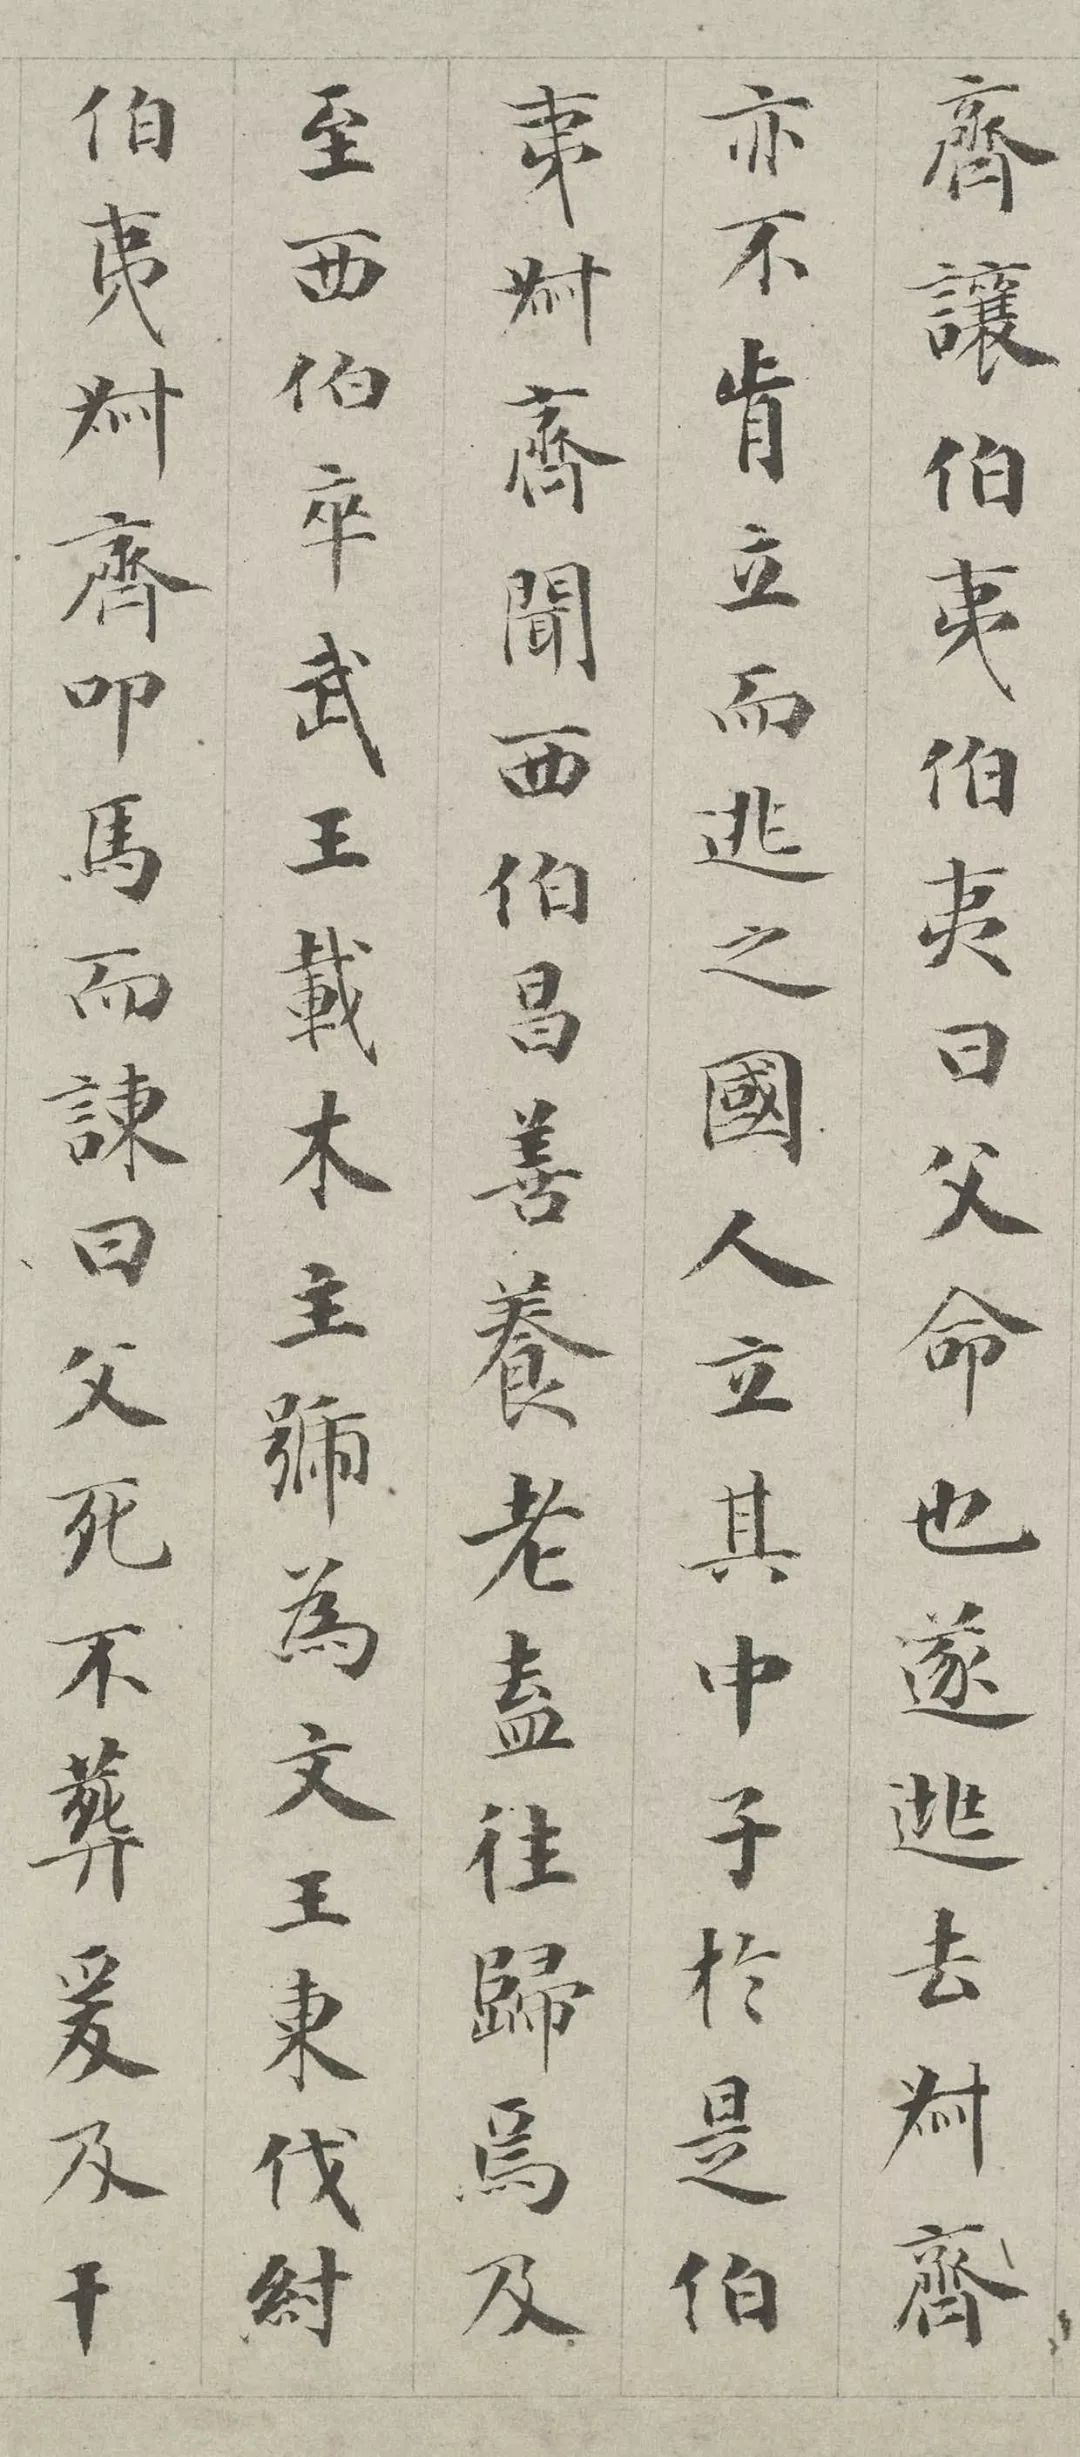 齊讓伯夷伯夷曰父命也遂逃去叔齊
亦不肯立而逃之國人立其中子於是伯
夷叔齊聞西伯昌善養老盍往歸焉及
至西伯卒武王載木主號為文王東伐紂
伯夷叔齊叩馬而諫曰父死不葬爰及干